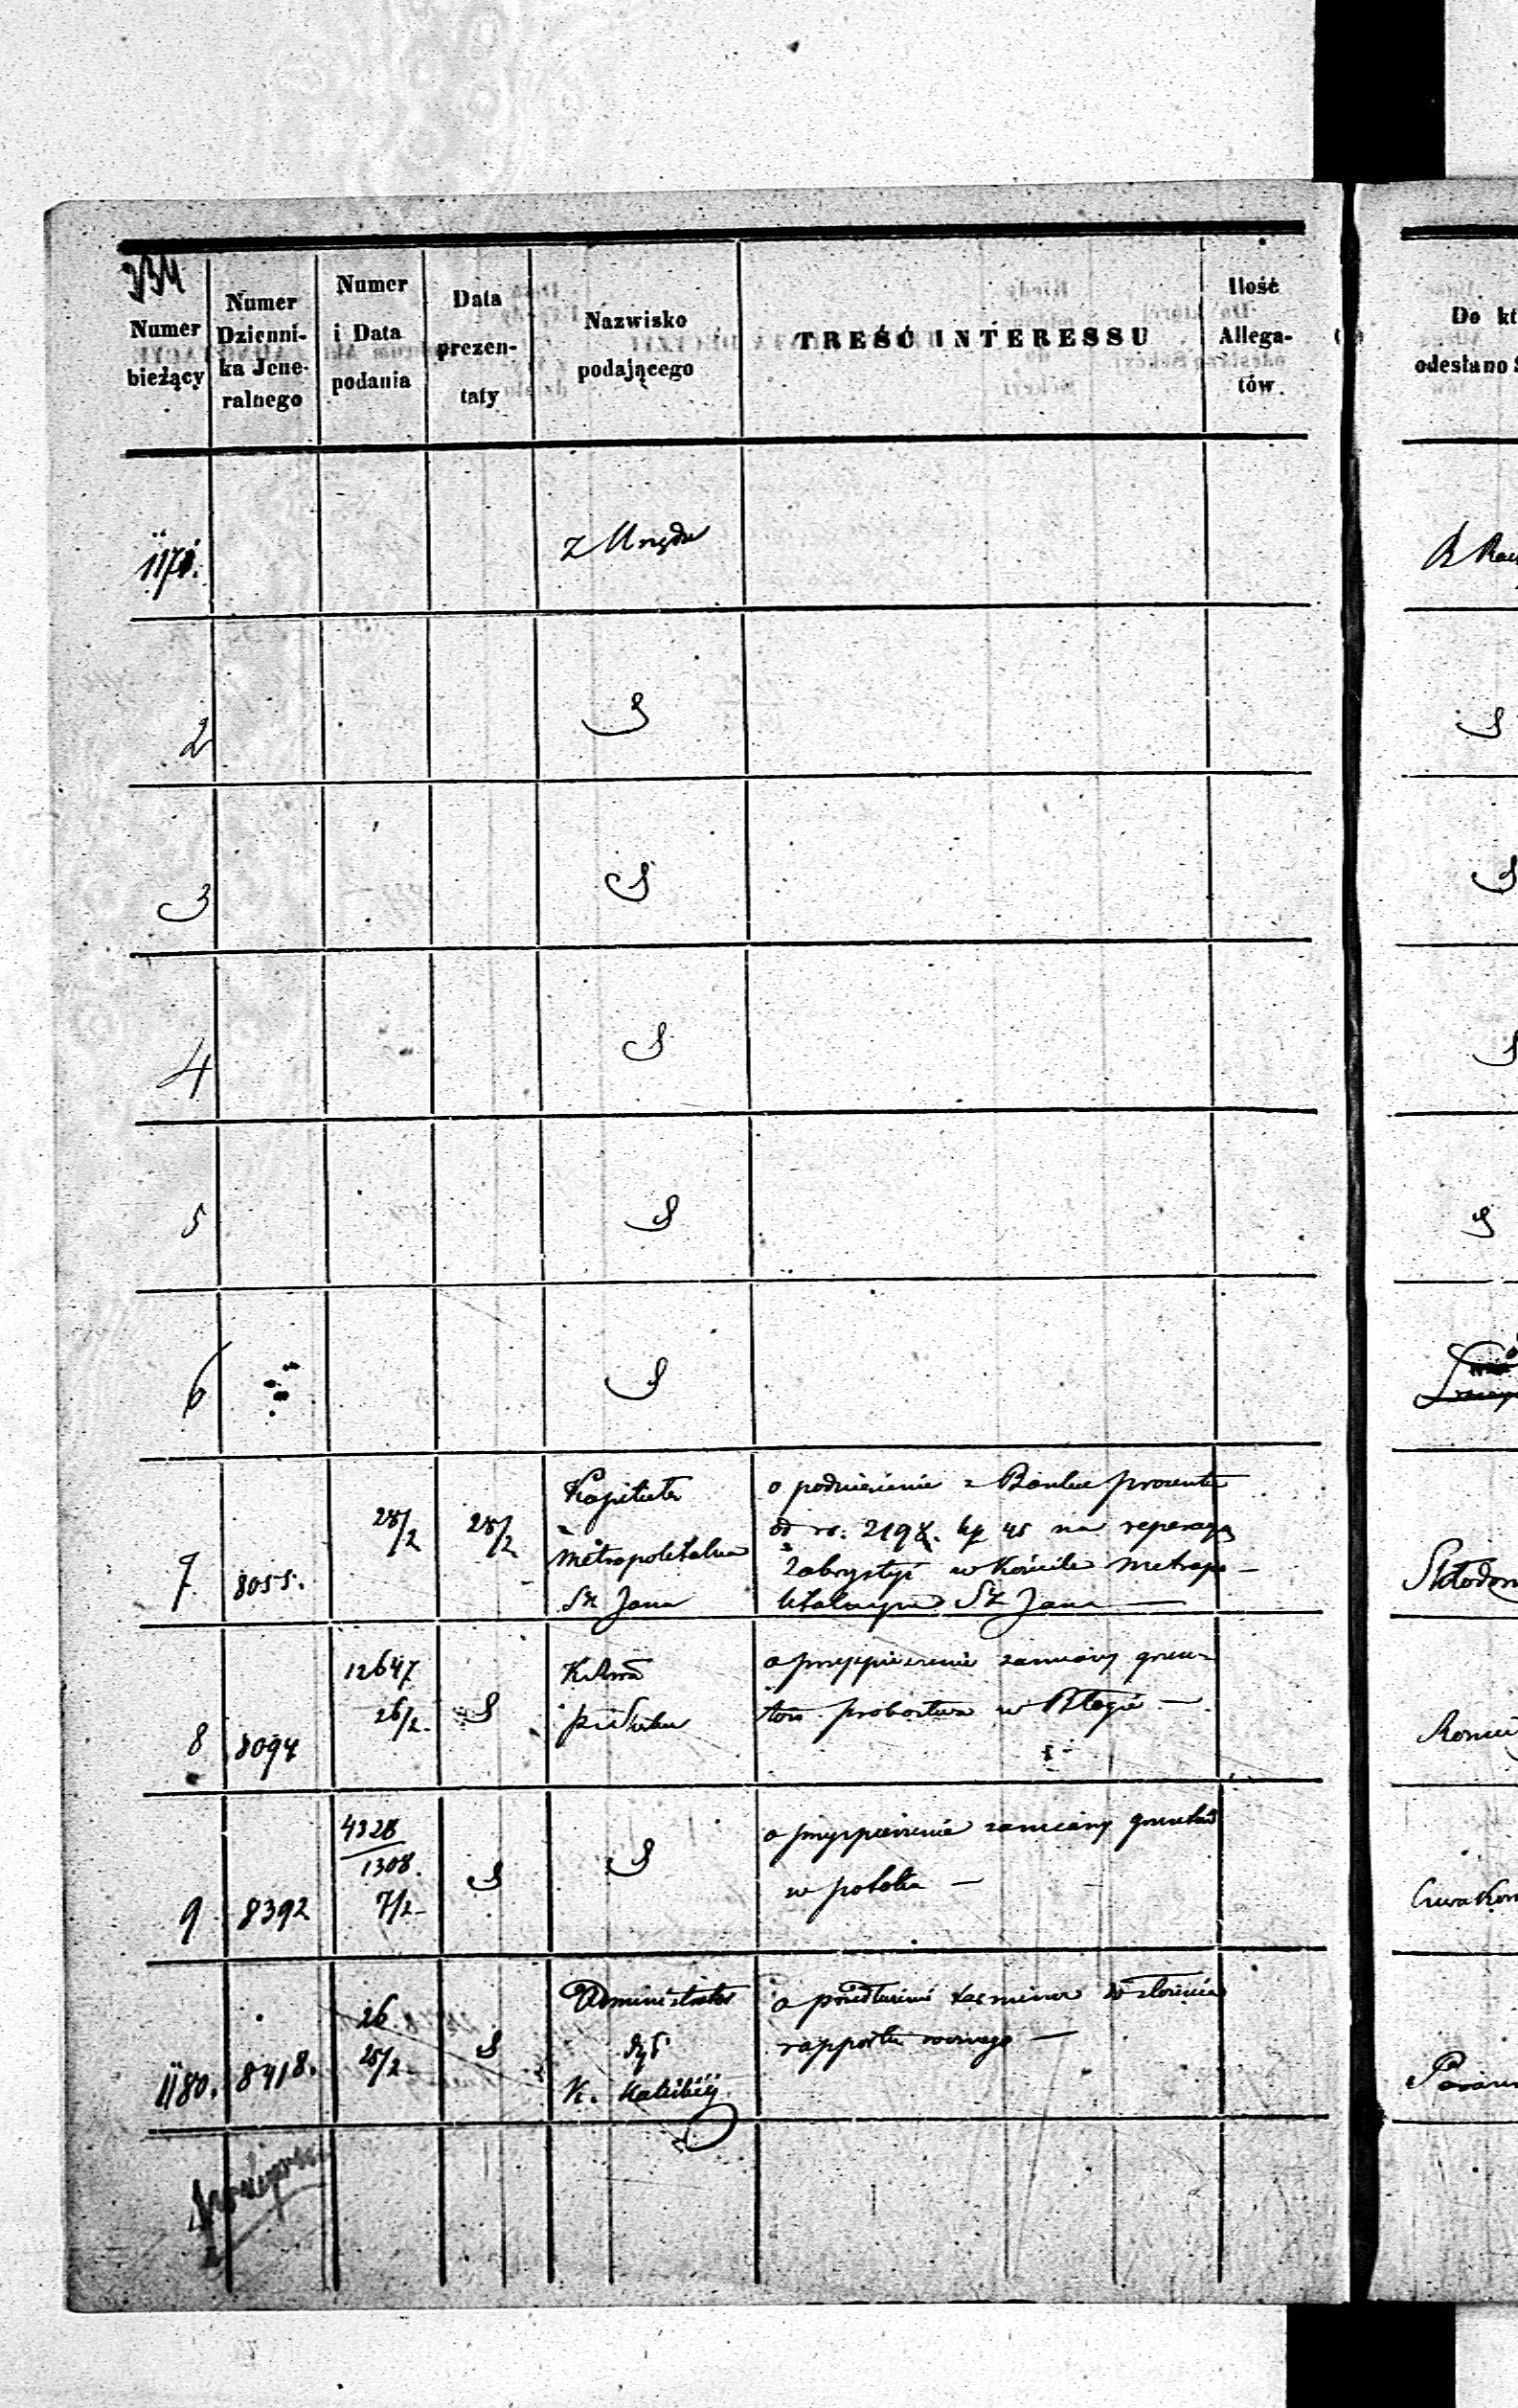 334
Numer
bieżący
Numer
Dzienni-
ka Jene-
ralnego
Numer
i Data
podania
Data
prezen-
taty
Nazwisko
podającego
TREŚĆ INTERESSU
Ilość
Allega-
tów.
Do kt
odesłano S
1171.
z Urzędu
2
S
S
3
S
S
4
S
S
5
S
S
6
S
7
8055.
28/2
28/2
Kapituła
Metropolitalna
Sw Jana
o podniesienie z Banku procentu
od rs: 2198. kp 45 na reperacyą
Zakrystyi w Kościele Metropo-
litalnym Sw Jana —
8
8094
12647
26/2.
S
o przyspieszenie zamiany grun-
tów probostwa w Błogie —
9
8392
4328
1308.
7/2
S
S
o przyspieszenie zamiany gruntów
w
1180.
8418.
26
25/2
S
Administrator
dyc
K. Kaliskiej
o przedłużenie terminu do złożenia
rapportu rocznego —